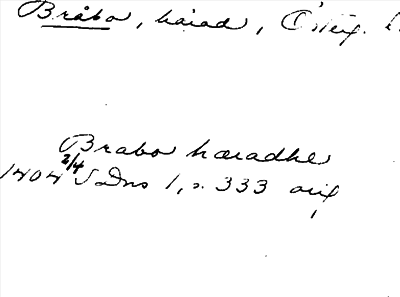 Bråbo, härad, Österg. 
Brabo hæradhe
1404 2/4 SDns 1, s. 333 orig